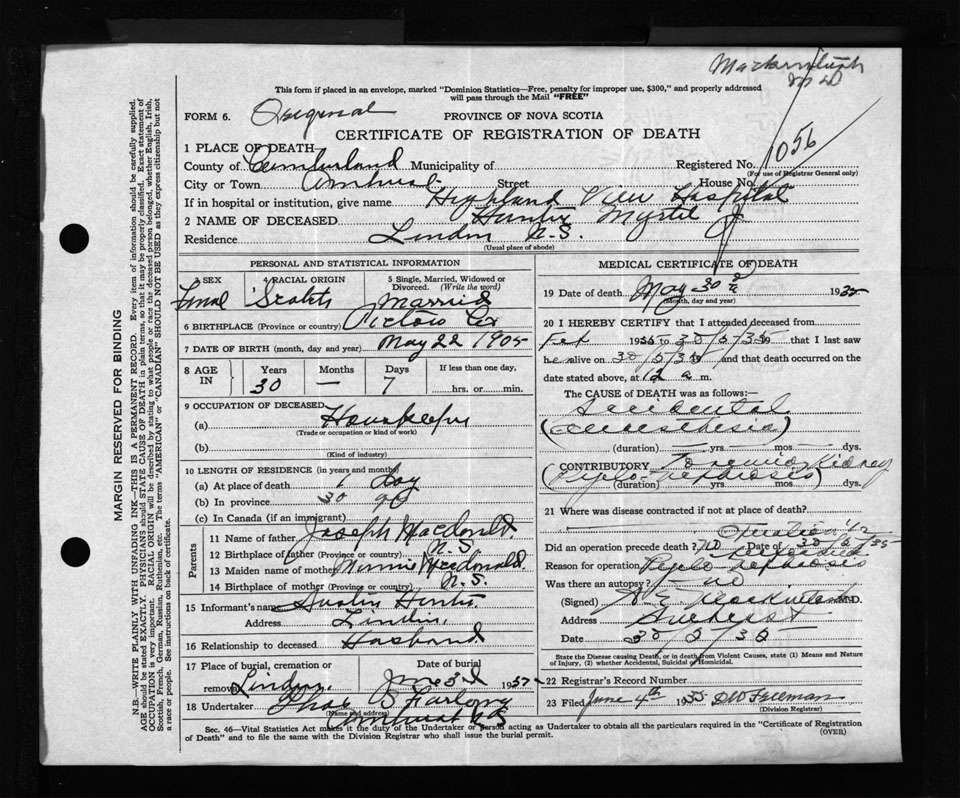 This form if placed in an envelope, marked "Dominion Statistics—Free, penalty for improper use, $300," and properly addressed
will pass through the Mail "FREE"
FORM 6. Original PROVINCE OF NOVA SCOTIA
CERTIFICATE OF REGISTRATION OF DEATH
1 PLACE OF DEATH—
County of Cumberland Municipality of Registered No. 1056
(For use of Registrar General only)
City or Town Amherst Street House No.
If in hospital or institution, give name Highland View Hospital
2 NAME OF DECEASED Hunter Myrtle J
Residence Linden N.S.
(Usual place of abode)
PERSONAL AND STATISTICAL INFORMATION
3 SEX 4 RACIAL ORIGIN 5 Single, Married, Widowed or
Divorced. (Write the word)
Female Scotch Married
6 BIRTHPLACE (Province or country) Pictou Co
7 DATE OF BIRTH (month, day and year) May 22 1905
8 AGE IN Years Months Days If less than one day,
30 — 7 hrs. or min.
9 OCCUPATION OF DECEASED
(a) Housekeeper
(Trade or occupation or kind of work)
(b)
(Kind of industry)
10 LENGTH OF RESIDENCE (in years and months)
(a) At place of death 1 day
(b) In province 30
(c) In Canada (if an immigrant)
Parents
11 Name of father Joseph Macdonald
12 Birthplace of father (Province or country) N.S.
13 Maiden name of mother Macdonald
14 Birthplace of mother (Province or country) N.S.
15 Informant's name Hunter
Address Linden
16 Relationship to deceased Husband
17 Place of burial, cremation or Date of burial
removal Linden June 3rd 1935
18 Undertaker
(Name and address)
Amherst NS
MEDICAL CERTIFICATE OF DEATH
19 Date of death May 30 1935
(Month, day and year)
20 I HEREBY CERTIFY that I attended deceased from
19 to 30/5/35 19 that I last saw
her alive on 30/5/35 19 and that death occurred on
date stated above, at 12 a m.
The CAUSE OF DEATH was as follows:—
Accidental
(Anaesthesia)
(duration) yrs. mos. dys.
CONTRIBUTORY Kidney
(Pyelo-nephrosis)
(duration) yrs. mos. dys.
21 Where was disease contracted if not at place of death?
Did an operation precede death? Date of 30/5/35
Reason for operation Pyelo nephrosis
Was there an autopsy? no
(Signed) M.D.
Address Amherst
Date 30/5/35
State the Disease causing Death, or in death from Violent Causes, state (1) Means and Nature
of Injury, (2) whether Accidental, Suicidal or Homicidal.
22 Registrar's Record Number
23 Filed June 4th 1935 Freeman
(Division Registrar)
Sec. 46—Vital Statistics Act makes it the duty of the Undertaker or person acting as Undertaker to obtain all the particulars required in the "Certificate of Registration
of Death" and to file the same with the Division Registrar who shall issue the burial permit. (OVER)
MARGIN RESERVED FOR BINDING
N.B.—WRITE PLAINLY WITH UNFADING INK—THIS IS A PERMANENT RECORD. Every item of information should be carefully supplied.
AGE should be stated EXACTLY. PHYSICIANS should STATE CAUSE OF DEATH in plain terms, so that it may be properly classified. Exact statement of
OCCUPATION is very important. RACIAL ORIGIN will be described by stating to what people or race the deceased person belonged, whether English, Irish,
Scottish, French, German, Russian, Ruthenian, etc. The terms "AMERICAN" or "CANADIAN" SHOULD NOT BE USED as they express citizenship but not
a race or people. See instructions on back of certificate.